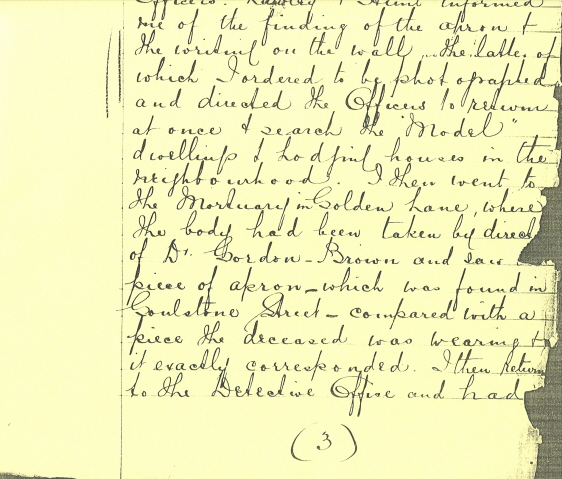 Officers. Halse & Hunt informed
me of the finding of the apron &
the writing on the wall, the latter of
which I ordered to be photographed
and directed the Officers to return
at once & search the "Model"
dwellings & lodging houses in the
neighbourhood. I then went to
the Mortuary in Golden Lane, where
the body had been taken by direct
of Dr. Gordon-Brown and saw
piece of apron - which was found in
Goulstone Street - compared with a
piece the deceased was wearing &
it exactly corresponded. I then return
to the Detective Office and had
(3)